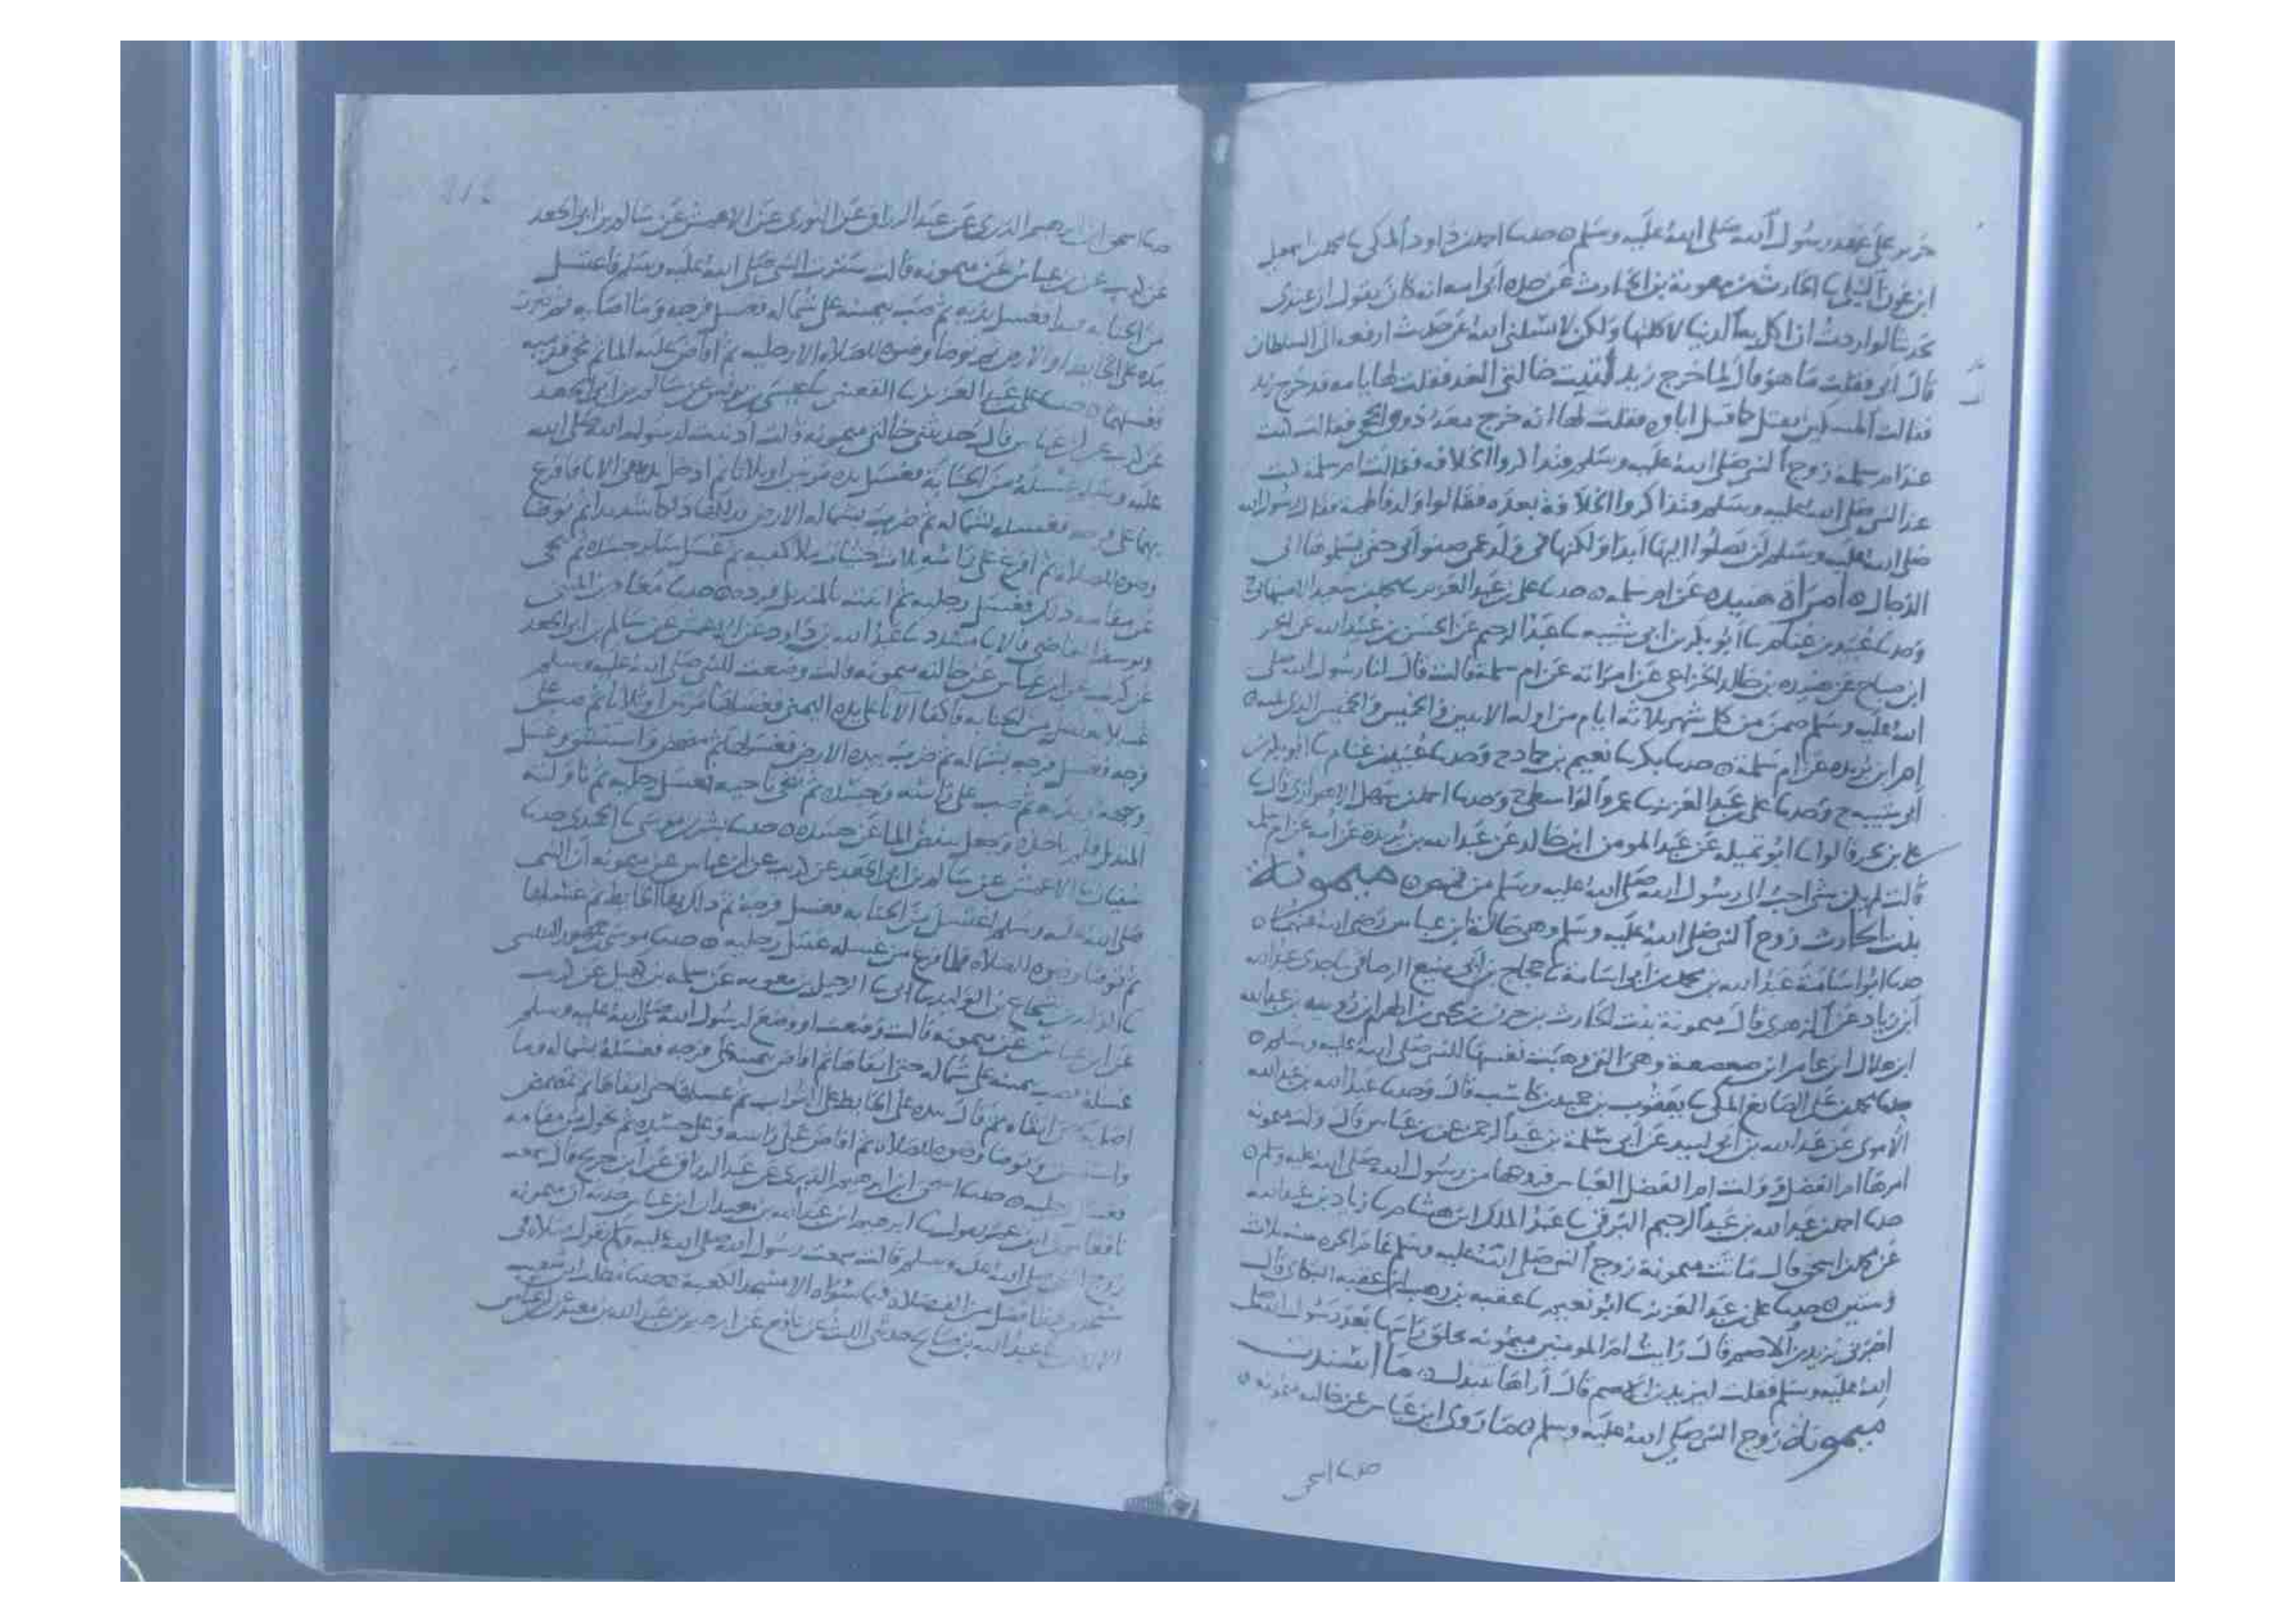 علي عهد رسول الله صلى الله عليه وسلم حدثنا احمد بن داود المكي
ابن عون
قال ابي فقلت ما هو قال لما خرج زيد اتيت خالتي الغد فقلت لها يا امه قد خرج زيد
فقالت المسكين يقتل كما قتل اباوه فقلت لها انه خرج معه ذوو الحجى فقالت كنت
عند ام سلمة زوج النبي صلى الله عليه وسلم فتذاكروا الخلافه فقالت ام سلمه كنت
عند النبي صلى الله عليه وسلم فتذاكروا الخلافة بعده فقالوا ولد فاطمة فقال رسول الله
صلى الله عليه وسلم لن يصلوا اليها ابدا ولكنها في ولد عمي صنو ابي حتى يسلموها الى
الدجال امرأة هنيده عن ام سلمه حدثنا علي بن عبد العزيز محمد بن سعيد الاصبهاني
وحدثنا عبيد بن غنام ابو بكر بن ابي شيبه عبد الرحيم عن الحسن بن عبيد الله عن الحر
ابن صياح عن هنيده بن خالد الخزاعي عن امراته عن ام سلمة قالت قال لنا رسول الله صلى
الله عليه وسلم صمن من كل شهر ثلاثه ايام من اوله الاثنين والخميس والخميس الذي يليه
ابن بريده عن ام سلمة حدثنا بكر نعيم بن حماد ح وحدثنا عبيد بن غنام ابو بكر بن
ابي شيبه ح وحدثنا علي بن عبد العزيز عمرو الواسطي ح وحدثنا احمد بن سهل الاهوازي قال
علي بن بحر قالوا ابو تميله عن عبد المومن ابن خالد عن عبد الله بن بريده عن ام سلمه
قالت لم يكن شي احب الى رسول الله صلى الله عليه وسلم من قميص ميمونة
بنت الحارث زوج النبي صلى الله عليه وسلم وهي خالة ابن عباس رضي الله عنهما
حدثنا ابو اسامة عبد الله بن محمد بن ابي اسامة حجاج بن ابي منيع الرصافي جدي عبيد الله
ابن زياد عن الزهري قال ميمونة بنت الحارث بن حزن بن بجير بن الهزم بن رويبه بن عبد الله
ابن هلال ابن عامر ابن صعصعة وهي التي وهبت نفسها للنبي صلى الله عليه وسلم
حدثنا محمد بن علي الصايغ المكي يعقوب بن حميد بن كاسب قال وحدثنا عبد الله بن عبد الله
الاموي عن عبد الله بن ابي لبيد عن ابي سلمة بن عبد الرحمن عن ابن عباس قال ولت ميمونه
امرها ام الفضل وولت ام الفضل العباس فزوجها من رسول الله صلى الله عليه وسلم
حدثنا احمد بن عبد الله بن عبد الرحيم البرقي عبد الملك ابن هشام زياد بن عبد الله
عن محمد بن اسحق قال ماتت ميمونة زوج النبي صلى الله عليه وسلم عام الحره سنه ثلاث
وستين حدثنا علي بن عبد العزيز ابو نعيم عقبه بن وهب ابن عقبه البكاي قال
اخبرني يزيد بن الاصم قال رايت ام المومنين ميمونه تحلق راسها بعد رسول الله صلى
الله عليه وسلم فقلت ليزيد بن الاصم قال اراها تبذل ما اسندت
ميمونة زوج النبي صلى الله عليه وسلم ما روى ابن عباس عن خالته ميمونه
حدثنا اسحق
حدثنا اسحق ابن ابرهيم الدبري عن عبد الرزاق عن الثوري عن الاعمش عن سالم بن ابي الجعد
عن كريب عن ابن عباس عن ميمونه قالت سترت النبي صلى الله عليه وسلم فاغتسل
من الجنابه فبدا فغسل يديه ثم صب بيمينه على شماله فغسل فرجه وما اصابه ثم ضرب
بيده على الحايط او الارض ثم توضا وضوه للصلاه الا رجليه ثم افاض عليه الما ثم نحى قدميه
فغسلهما حدثنا علي بن عبد العزيز القعنبي عيسى بن يونس عن سالم بن ابي الجعد
عن كريب عن ابن عباس قال حدثتني خالتي ميمونه قالت ادنيت لرسول الله صلى الله
عليه وسلم غسله من الجنابة فغسل يده مرتين او ثلاثا ثم ادخل يده في الانا فافرغ
بها على فرجه فغسله بشماله ثم ضرب بشماله الارض فدلكها دلكا شديدا ثم توضا
وضوه للصلاه ثم افرغ على راسه ثلاث حثيات ملا كفيه ثم غسل ساير جسده ثم تنحى
عن مقامه ذلك فغسل رجليه ثم اتيته بالمنديل فرده حدثنا معاذ بن المثنى
ويوسف القاضي قالا مسدد عبد الله بن داود عن الاعمش عن سالم بن ابي الجعد
عن كريب عن ابن عباس عن خالته ميمونه قالت وضعت للنبي صلى الله عليه وسلم
غسلا يغتسل من الجنابه فاكفا الانا على يده اليمنى فغسلها مرتين او ثلاثا ثم صب على
فرجه فغسل فرجه بشماله ثم ضرب بيده الارض فغسلها ثم تمضمض واستنشق وغسل
وجهه ويديه ثم صب على راسه وجسده ثم تنحى ناحيه فغسل رجليه ثم ناولته
المنديل فلم ياخذه وجعل ينفض الما عن جسده حدثنا بشر بن موسى الحميدي
سفيان الاعمش عن سالم بن ابي الجعد عن كريب عن ابن عباس عن ميمونه ان النبي
صلى الله عليه وسلم اغتسل من الجنابه فغسل فرجه ثم دلك بها الحايط ثم غسلها
ثم توضا وضوه للصلاه فلما فرغ من غسله غسل رجليه حدثنا موسى
شجاع بن الوليد ابي الرحيل بن معويه عن سلمه بن كهيل عن كريب
عن ابن عباس عن ميمونه قالت وضعت او وضع لرسول الله صلى الله عليه وسلم
غسله فصب بيمينه على شماله حتى انقاها ثم افاض بيمينه على فرجه فغسله بشماله وما
اصابه حتى انقاه ثم قال بيده على الحايط على التراب ثم غسلها حتى انقاها ثم تمضمض
واستنشق وتوضا وضوه للصلاه ثم افاض على راسه وعلى جسده ثم تحول من مقامه
فغسل رجليه حدثنا اسحق ابن ابرهيم الدبري عن عبد الرزاق عن ابن جريج قال سمعت
نافعا ابن عمر يقول ابرهيم ابن عبد الله بن معبد ان ابن عباس حدثه ان ميمونه
زوج النبي صلى الله عليه وسلم قالت سمعت رسول الله صلى الله عليه وسلم يقول صلاة في
مسجدي هذا افضل من الف صلاة فيما سواه الا مسجد الكعبة حدثنا مطلب ابن شعيب
الازدي عبد الله بن صالح حدثني الليث عن نافع عن ابرهيم بن عبد الله بن معبد عن ابن عباس